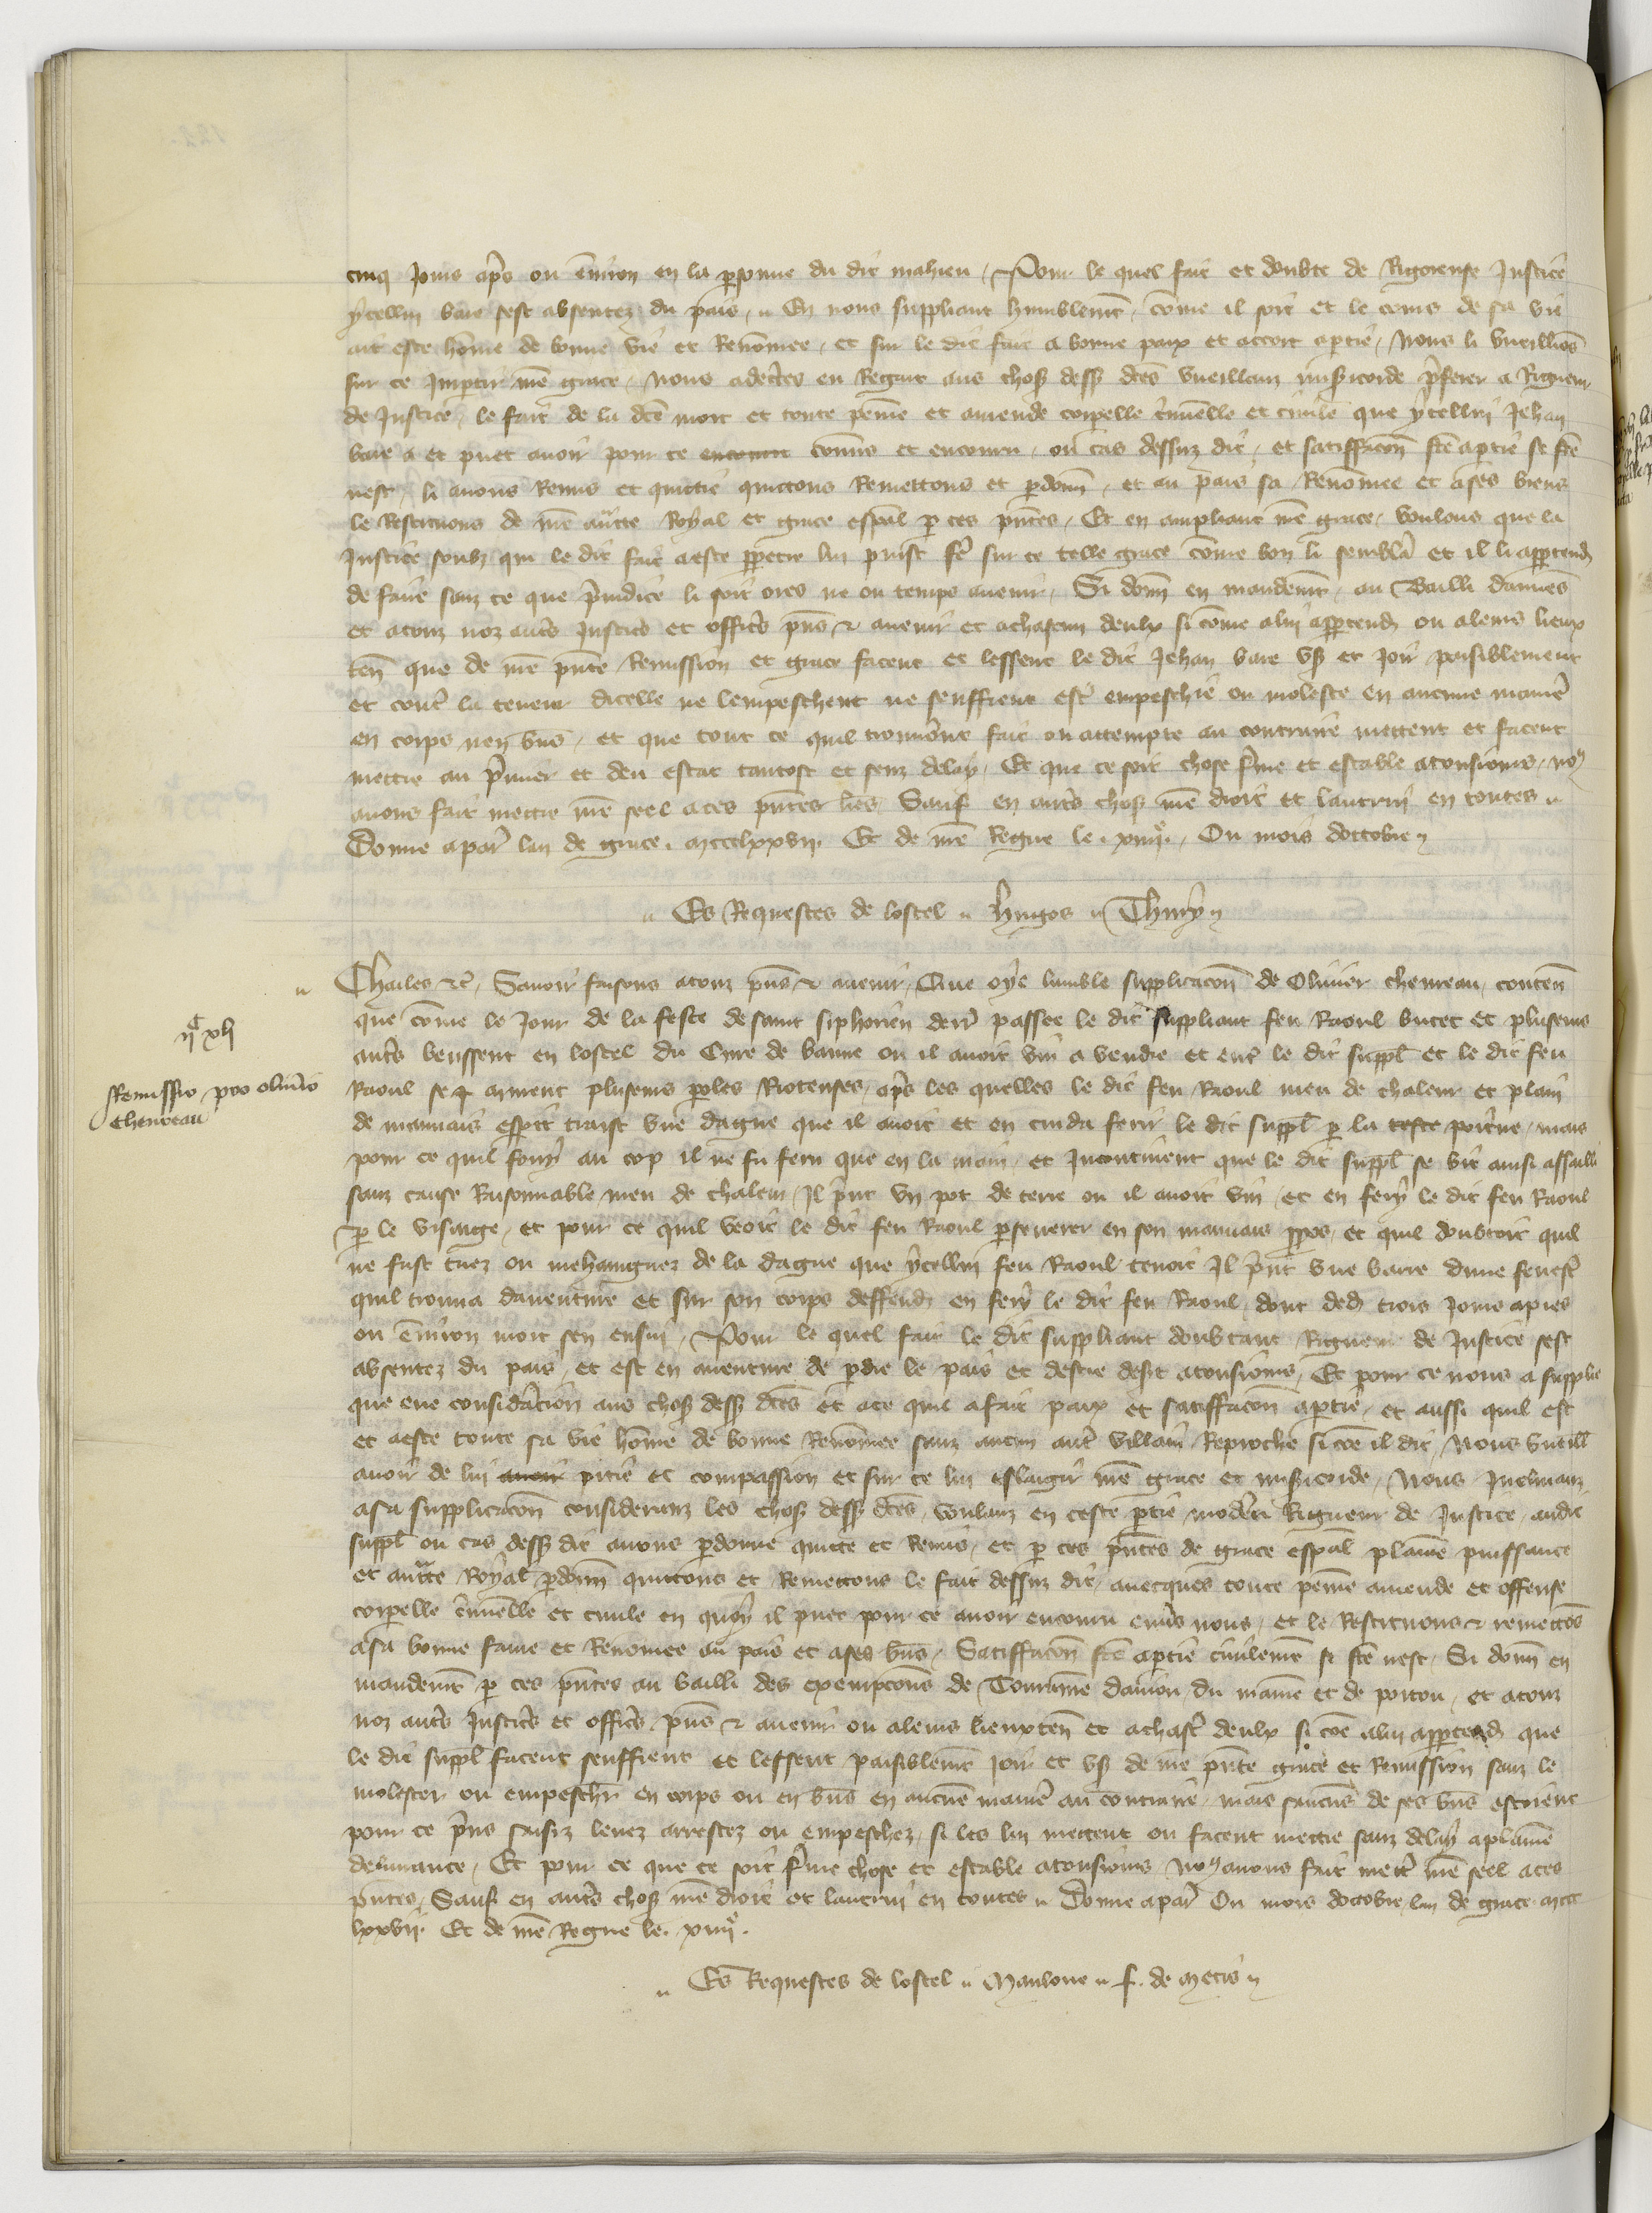 cinq jours aps ou environ en la psonne du dit mahieu / Pour le quel fait et doubte de Rigoreuse justice
ycellui bare sest absentez du pais / En nous suppliant humblemt / come il soit et le cours de sa vie
ait este home de bonne vie et Renomee / et sur le dit fait a bonne paix et accort a ptie / Nous li vueillions
sur ce Impartir nre grace / Nous adectes en Regart aus choses dess dctes vueillanz misericorde pferer a Rigueur
de Justice / le fait de la dcte mort et toute peine et amende corpelle criminelle et civile que ycellui Jehan
bare a et puet avoir pour ce encouru commis et encouru / ou cas dessuz dit / et satisffacon fte a ptie se fte
nest / li avons Remis et quittie quittons Remettons et pdonn / et au pais sa Renomee et a ses biens
le Restituons de nre auctte Royal et grace espal p ces pntes / Et en ampliant nre grace / voulons que la
Justice soubz qui le dit fait a este ppetre lui puist fe sur ce telle grace come bon li semblera et il li apptendra
de faire sanz ce que preiudice li soit ores ne ou temps avenir / Si donn en mandemt / au Bailli damiens
et a touz noz autres Justiciers et officiers pns & avenir et a chascun deulx si come a lui apptendra ou a leurs lieux
ten que de nre pnte Remission et grace facent et lessent le dit Jehan bare user et joir paisiblement
et contre la teneur dicelle ne lempeschent ne seuffrent estre empeschie ou moleste en aucune maniere
en corps nen biens / et que tout ce quil trouveront fait ou attempte au contraire mettent et facent
mettre au premier et deu estat tantost et senz delay / Et que ce soit chose ferme et estable a tousiours / nous
avons fait mettre nre seel a ces pntes lres / Sauf en autres choses nre droit et lautrui en toutes
Donne a paris lan de grace mccclxxvii Et de nre Regne le xiiiie / Ou mois doctobre
Es Requestes de lostel Hugos Thury
Charles &c / Savoir faisons a touz pns & avenir / Que oye lumble supplicacon de Olivier chevreau / conten
que come le Jour de la feste de saint siphorien derr passee le dit suppliant feu Raoul bucet et pluseurs
autres beussent en lostel du Cure de banne ou il avoit vin a vendre et entre le dit suppl et le dit feu
Raoul se murent pluseurs poles Rioteuses / aps les quelles le dit feu Raoul meu de chaleur et plain
de mauvais esperit traist une dague que il avoit et en cuida ferir le dit suppl p la teste poitrine / mais
pour ce quil fouy au cop il ne fu feru que en la main / et Incontinent que le dit suppl se vit ainsi assailli
sanz cause Raisonnable meu de chaleur / Il print un pot de terre ou il avoit vin / et en fery le dit feu Raoul
p le visaige / et pour ce quil veoit le dit feu Raoul pseverer en son mauvais ppos / et quil doubtoit quil
ne fust tuez ou mehaingnez de la dague que ycellui feu Raoul tenoit Il print une barre dune fenestre
quil trouva daventure et sur son corps deffend en fery le dit feu Raoul / dont dedens trois jours apres
ou environ mort sen ensui / Pour le quel fait le dit suppliant doubtant Rigueur de Justice sest
absentez du pais / et est en aventure de pdre le pais et destre desert a tousiours / Et pour ce nous a supplie
que eue consideracion aus choses dess dctes et a ce quil a fait paix et satisffacon a ptie / et aussi quil est
et a este toute sa vie home de bonne Renomee sanz aucun autre villain Reproche si coe il dit / Nous vueill
avoir de lui avoir pitie et compassion et sur ce lui eslargir nre grace et misericorde / Nous Inclinanz
a sa supplicacon consideranz les choses dess dctes / voulanz en ceste ptie moderer Rigueur de Justice / audit
suppl ou cas dess dit avons pdonne quitte et Remis / et p ces pntes de grace espal plaine puissance
et auctte Royal pdonn quittons et Remettons le fait dessuz dit / avecques toute peine amende et offense
corpelle criminelle et civile en quoy il puet pour ce avoir encouru envers nous / et le Restituons & remettons
a sa bonne fame et Renomee au pais et a ses biens / Satisffacon fte a ptie civilemt si fte nest / Si donn en
mandemt p ces pntes au bailli des exempcons de Touraine danjou du maine et de poitou / et a touz
noz autres Justiciers et officiers pns & avenir ou a leurs lieuxten et a chascun deulx si coe a lui apptendra que
le dit suppl facent seuffrent et lessent paisiblemt joir et user de nre pnte grace et Remission sanz le
molester ou empescher en corps ou en biens en aucune maniere au contraire / mais saucuns de ses biens estoient
pour ce prins saisiz levez arrestez ou empeschez / si les lui mettent ou facent mettre sanz delay a plaine
delivrance / Et pour ce que ce soit ferme chose et estable a tousiours / nous avons fait mettre nre seel a ces
pntes / Sauf en autres choses nre droit et lautrui en toutes Donne a paris Ou mois doctobre lan de grace mccc
lxxvii Et de nre Regne le xiiiie
Es Requestes de lostel Manlone f. de metis
iic xli
Remissio pro olivio
chevreau